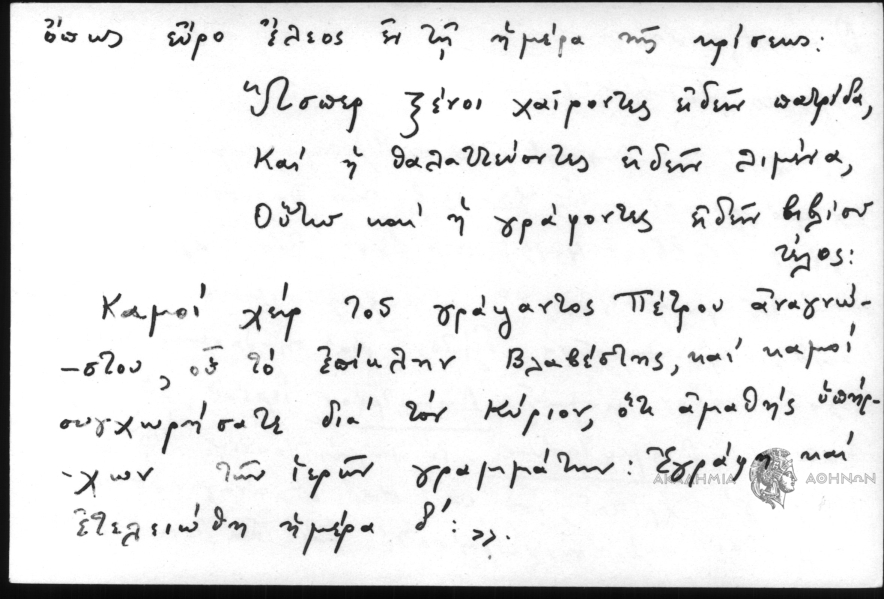 ὅπως εὕρο ἔλεος ἐν τῇ ἡμέρᾳ τῆς κρίσεως:
Ὥσπερ ξένοι χαίροντες εἰδεῖν πατρίδα,
Καί ἡ θαλαττεύοντες εἰδεῖν λιμένα,
Οὕτω καί ἡ γράφοντες εἰδεῖν βιβλίου
τέλος:
Καμοί χείρ τοῦ γράψαντος Πέτρου ἀναγνώ-
-στου, οὗ τό ἐπίκλην Βλαβέστης, καί καμοί
συγχωρήσατε διά τόν Κύριον, ὅτι ἀμαθής ὑπῆρ-
-χων τῶν ἱερῶν γραμμάτων: Ἐγράφη καί
ἐτελειώθη ἡμέρα δ΄: ».
ΑΚΑΔΗΜΙΑ ΑΘΗΝΩΝ